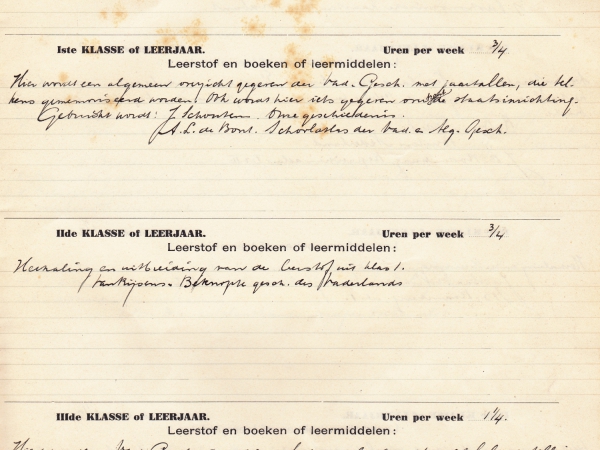 Iste KLASSE of LEERJAAR. Uren per week 3/4
Leerstof en boeken of leermiddelen:
Hier wordt een algemeen overzicht gegeven der Vad. Gesch. met jaartallen, die tel-
kens gememoriseerd worden. Ook wordt hier iets gegeven de staatsinrichting.
Gebruikt wordt: J. Schouten. Onze geschiedenis.
A. L. de Bont. Schoolatlas der vad. en Alg. Gesch.
IIde KLASSE of LEERJAAR. Uren per week 3/4
Leerstof en boeken of leermiddelen:
Herhaling en uitbreiding van de leerstof uit klas 1.
Beknopte gesch. des Vaderlands
IIIde KLASSE of LEERJAAR. Uren per week 1 1/4.
Leerstof en boeken of leermiddelen: